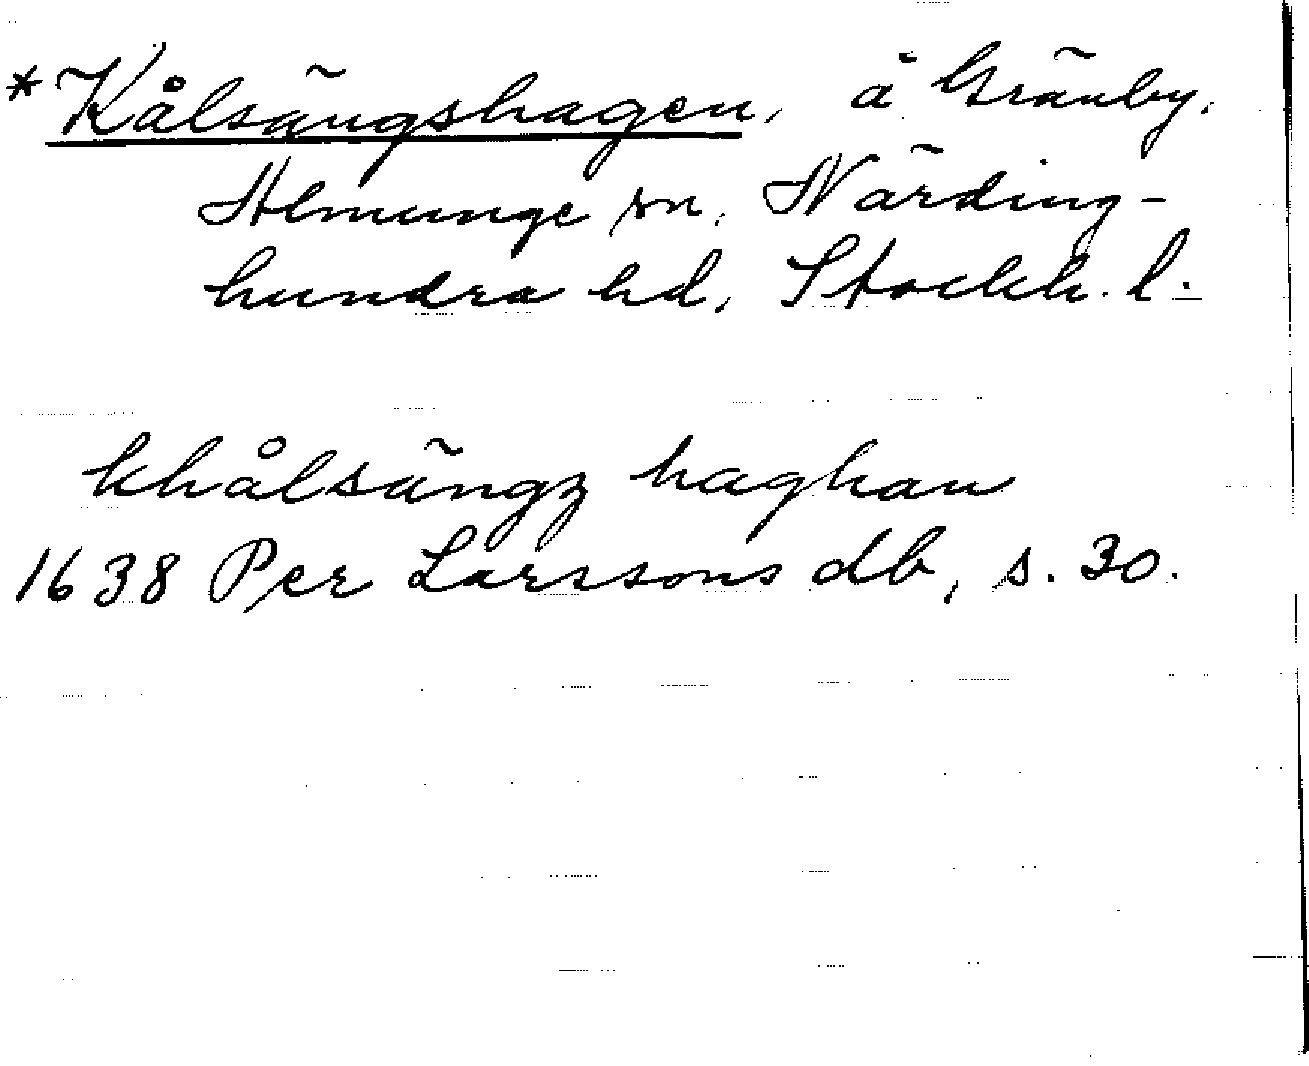 *Kålsängshagen, å Gränby,
Almunge sn, Närding-
hundra hd, Stockh. l.
khålsängz haghan
1638 Per Larssons db, s. 30.